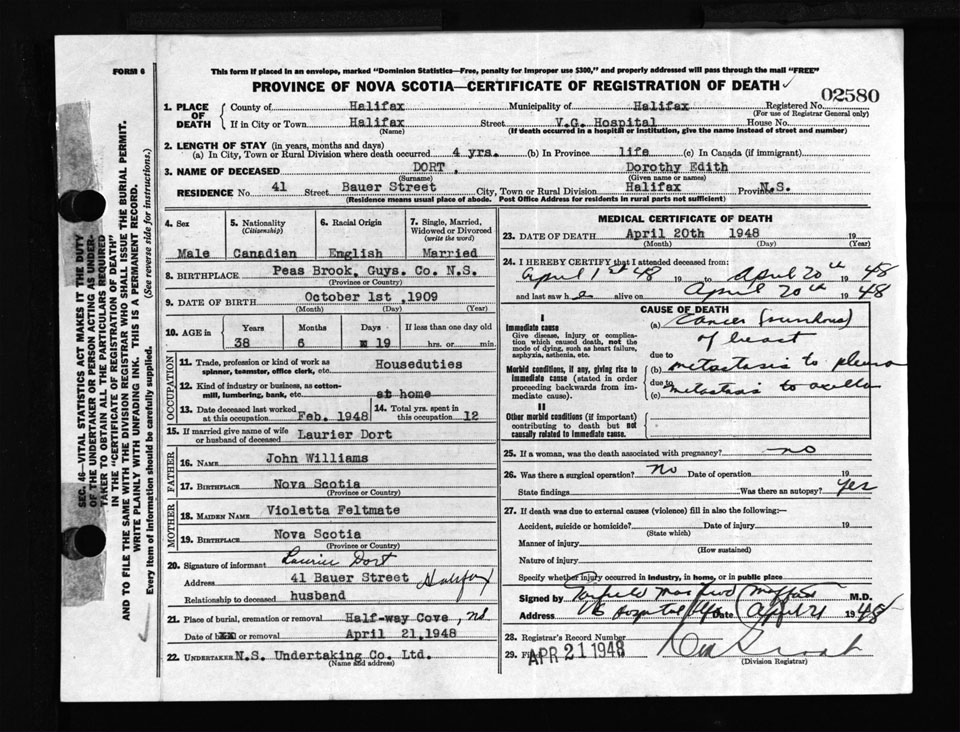 FORM 6
This form if placed in an envelope, marked "Dominion Statistics—Free, penalty for improper use $300," and properly addressed will pass through the mail "FREE"
PROVINCE OF NOVA SCOTIA—CERTIFICATE OF REGISTRATION OF DEATH
02580
1. PLACE OF DEATH
County of Halifax Municipality of Halifax Registered No.
(For use of Registrar General only)
If in City or Town Halifax Street V.G. Hospital House No.
(Name) (If death occurred in a hospital or institution, give the name instead of street and number)
2. LENGTH OF STAY (in years, months and days)
(a) In City, Town or Rural Division where death occurred 4 yrs. (b) In Province life (c) In Canada (if immigrant)
3. NAME OF DECEASED DORT, Dorothy Edith
(Surname) (Given name or names)
RESIDENCE No. 41 Street Bauer Street City, Town or Rural Division Halifax Province N.S.
(Residence means usual place of abode. Post Office Address for residents in rural parts not sufficient)
4. Sex 5. Nationality (Citizenship) 6. Racial Origin 7. Single, Married, Widowed or Divorced (write the word)
Male Canadian English Married
8. BIRTHPLACE Peas Brook, Guys. Co. N.S.
(Province or Country)
9. DATE OF BIRTH October 1st, 1909
(Month) (Day) (Year)
10. AGE in Years Months Days If less than one day old
38 6 19 hrs. or min.
OCCUPATION
11. Trade, profession or kind of work as spinner, teamster, office clerk, etc. Houseduties
12. Kind of industry or business, as cotton-mill, lumbering, bank, etc. at home
13. Date deceased last worked at this occupation Feb. 1948 14. Total yrs. spent in this occupation 12
15. If married give name of wife or husband of deceased Laurier Dort
FATHER
16. NAME John Williams
17. BIRTHPLACE Nova Scotia
(Province or Country)
MOTHER
18. MAIDEN NAME Violetta Feltmate
19. BIRTHPLACE Nova Scotia
(Province or Country)
20. Signature of informant Laurier Dort
Address 41 Bauer Street Halifax
Relationship to deceased husband
21. Place of burial, cremation or removal Half-way Cove, NS
Date of or removal April 21, 1948
22. UNDERTAKER N.S. Undertaking Co. Ltd.
(Name and address)
MEDICAL CERTIFICATE OF DEATH
23. DATE OF DEATH April 20th 1948
(Month) (Day) (Year)
24. I HEREBY CERTIFY that I attended deceased from:
April 1st 48 19 to April 20th 1948
and last saw h alive on April 20th 1948
CAUSE OF DEATH
I
Immediate cause
Give disease, injury or complication which caused death, not the mode of dying, such as heart failure, asphyxia, asthenia, etc.
Morbid conditions, if any, giving rise to immediate cause (stated in order proceeding backwards from immediate cause).
II
Other morbid conditions (if important) contributing to death but not causally related to immediate cause.
(a) Cancer
of breast
due to
(b) metastasis to pleura
due to
(c) metastasis to axilla
25. If a woman, was the death associated with pregnancy? no
26. Was there a surgical operation? No Date of operation 19
State findings Was there an autopsy? Yes
27. If death was due to external causes (violence) fill in also the following:—
Accident, suicide or homicide? Date of injury 19
(State which)
Manner of injury
(How sustained)
Nature of injury
Specify whether injury occurred in industry, in home, or in public place
Signed by M.D.
Address VG Hospital Hfx Date April 21 1948
28. Registrar's Record Number
29. Filed APR 21 1948
(Division Registrar)
SEC. 46—VITAL STATISTICS ACT MAKES IT THE DUTY
OF THE UNDERTAKER OR PERSON ACTING AS UNDER-
TAKER TO OBTAIN ALL THE PARTICULARS REQUIRED
IN THE "CERTIFICATE OF REGISTRATION OF DEATH"
AND TO FILE THE SAME WITH THE DIVISION REGISTRAR WHO SHALL ISSUE THE BURIAL PERMIT.
WRITE PLAINLY WITH UNFADING INK. THIS IS A PERMANENT RECORD.
Every item of information should be carefully supplied. (See reverse side for instructions.)